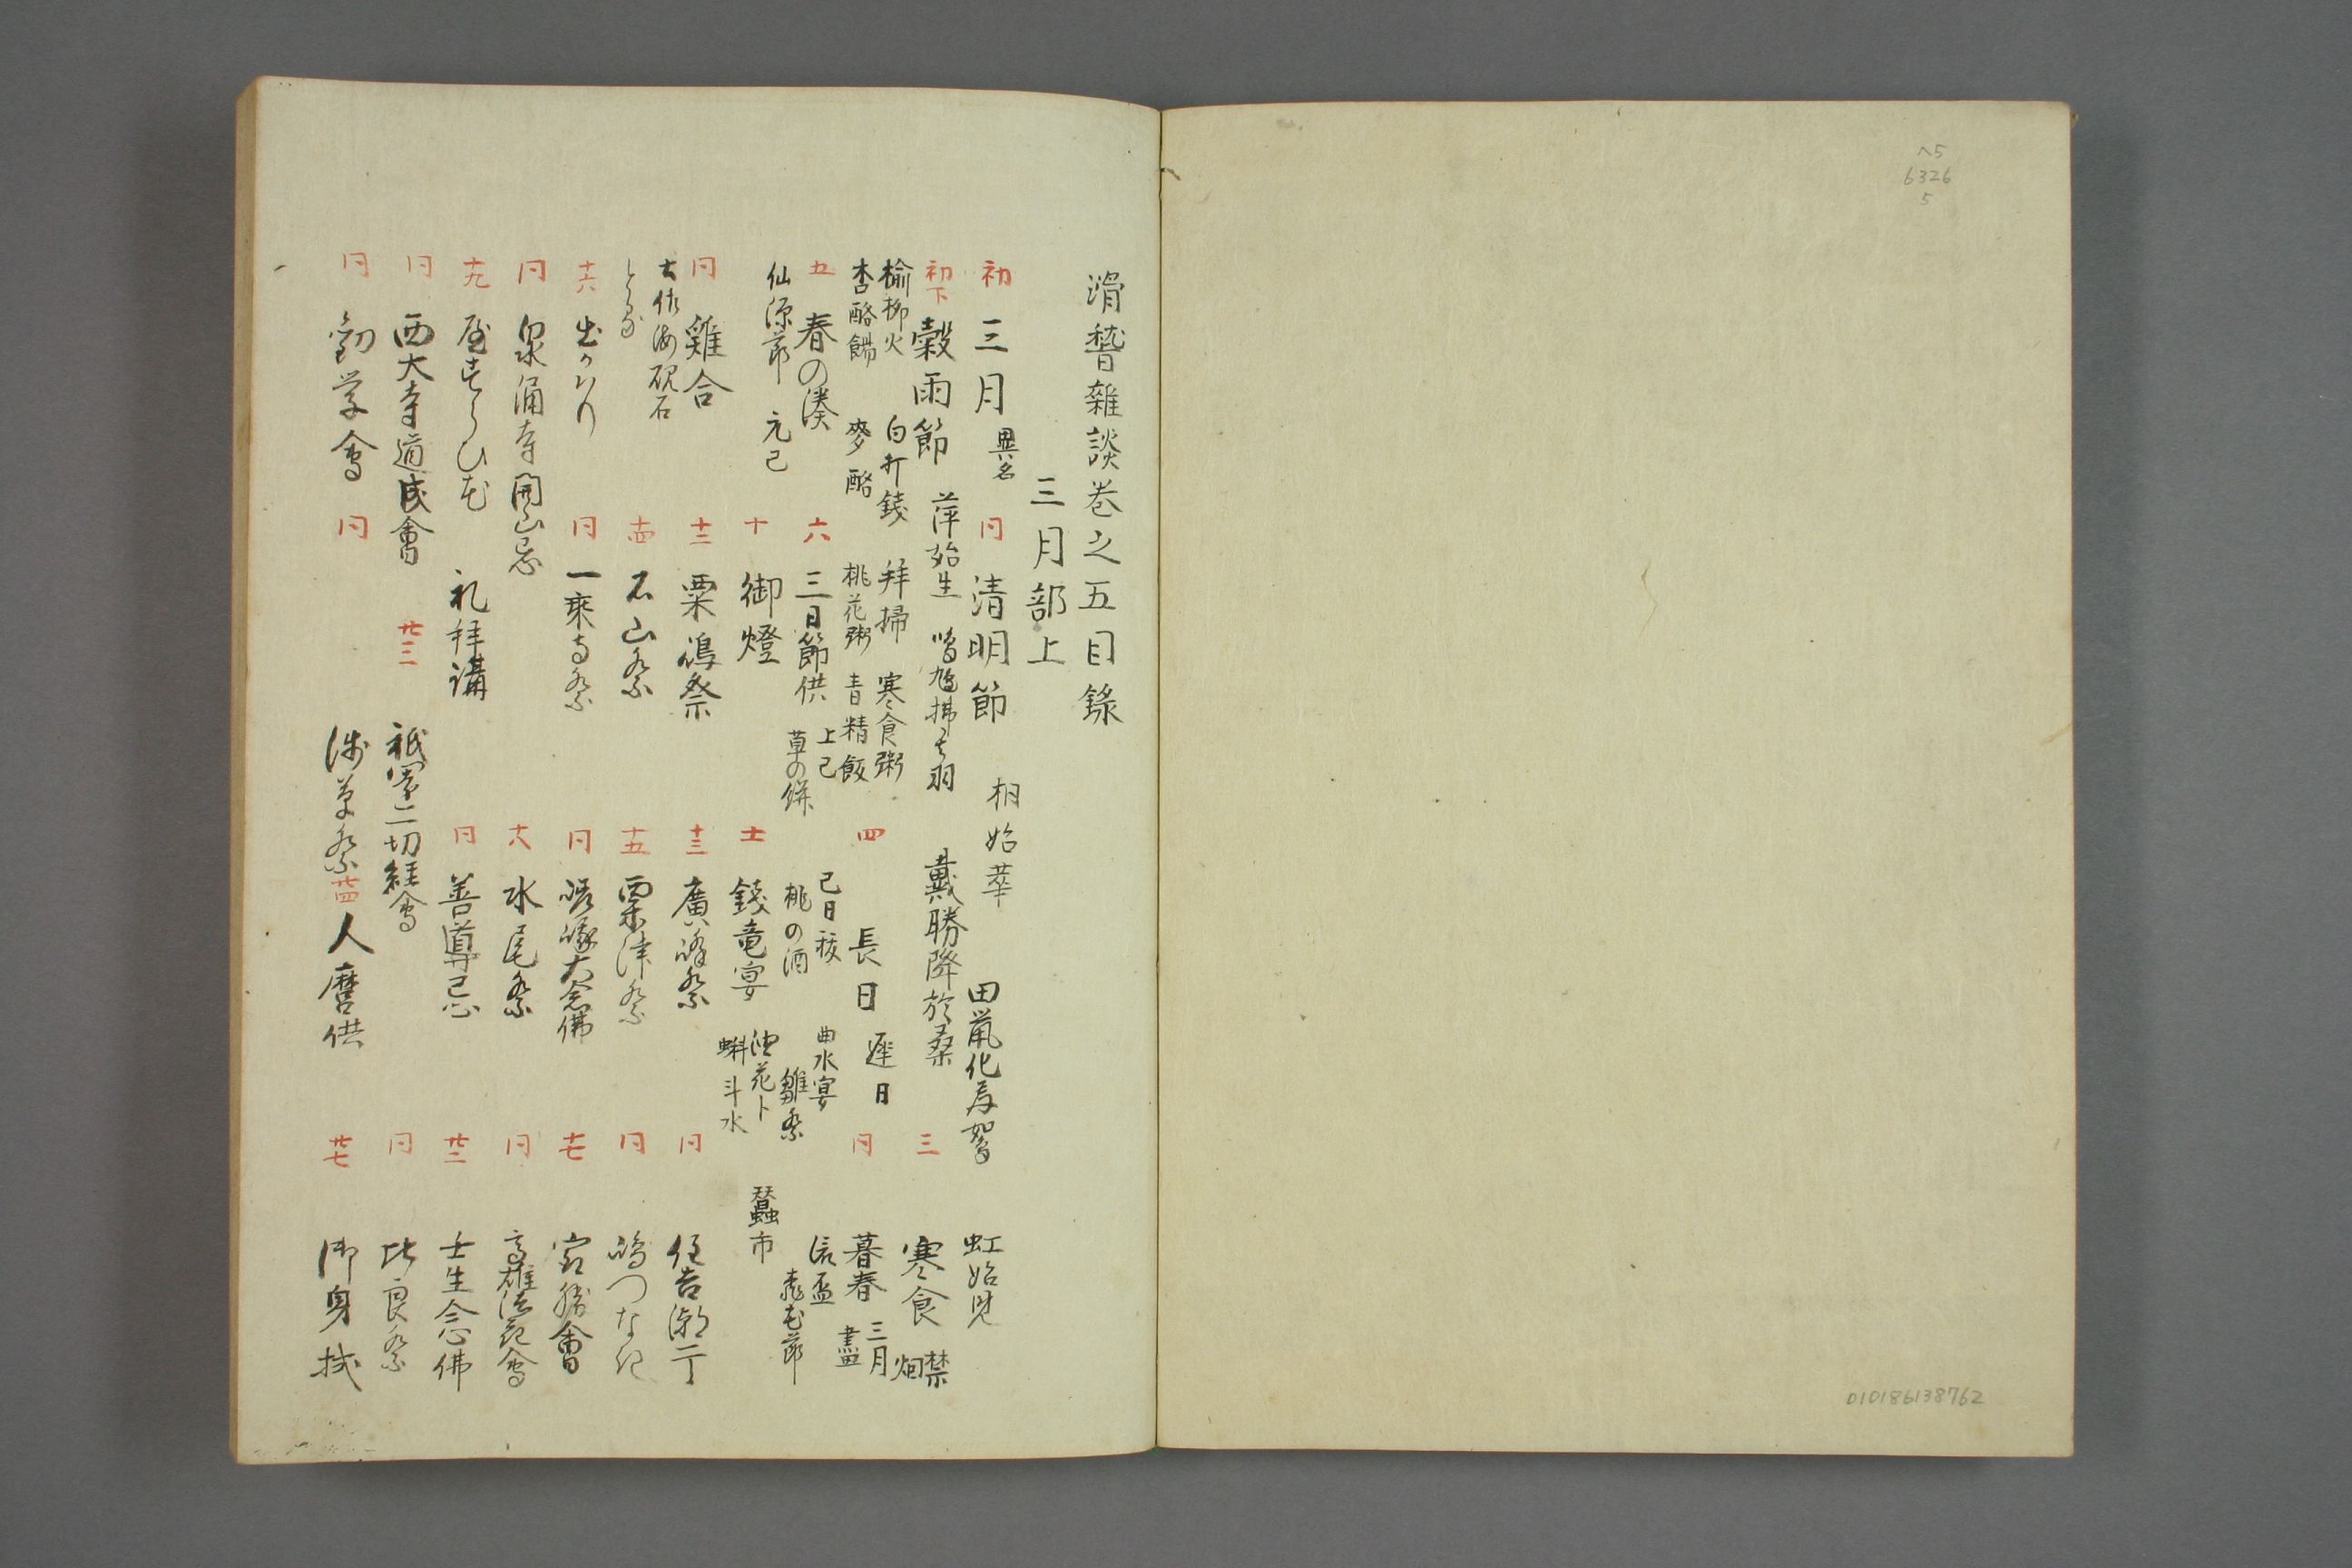 ヘ5
6326
5
010186138762
滑稽雜談巻之五目録
三月部上
初 三月 異名 同 清明節 桐始華 田鼠化為鴽 虹始見
初下 穀雨節 萍始生 鳴鳩拂其羽 戴勝降於桑 三 寒食 禁烟
楡柳火 白打銭 拜掃 寒食粥
杏酪餳 麥酪 桃花粥 青精飯 四 長日 遅日 同 暮春 三月盡
五 春の湊 六 三日節供 上巳 巳日祓 曲水宴 流盃
仙源節 元巳 草の餅 桃の酒 雛祭 桃花節
十 御燈 土 錢竜宴 油花卜 蝌斗水 蠶市
同 雞合 十二 粟嶋祭 十三 廣峰祭 同 住吉潮干
土佐海硯石
とる 十四 石山祭 十五 粟津祭 同 嶋つなき
十六 出かはり 同 一乘寺祭 同 嵯峨大念佛 十七 最勝會
同 泉涌寺開山忌 十八 水尾祭 同 高雄法花會
十九 礼拜講 同 善導忌 廿二 壬生念佛
同 西大寺道成會 廿三 祇園一切経會 同 比良祭
同 勧学會 同 浅草祭 廿四 人麿供 廿七 御身拭